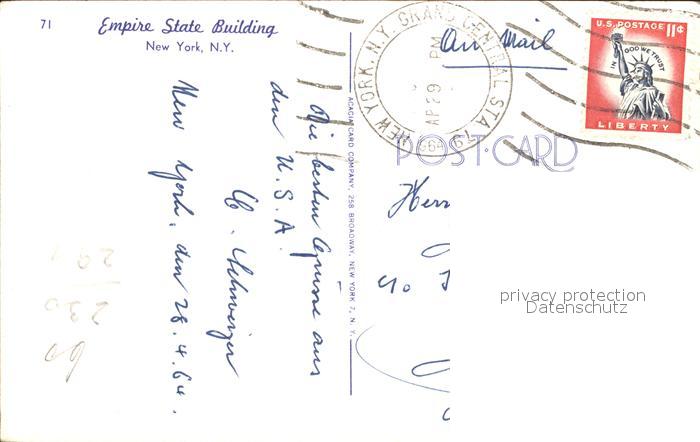 71
Empire State Building
New York, N.Y.
New York, den 28.4.64.
Die besten Grüsse aus
den U.S.A.
ACACIA CARD COMPANY, 258 BROADWAY, NEW YORK 7, N. Y.
NEW YORK, N.Y. GRAND CENTRAL STA.
AP 29
PM
1964
Air Mail
U.S. POSTAGE 11¢
IN GOD WE TRUST
LIBERTY
POST CARD
Herr
privacy protection
Datenschutz
60
230